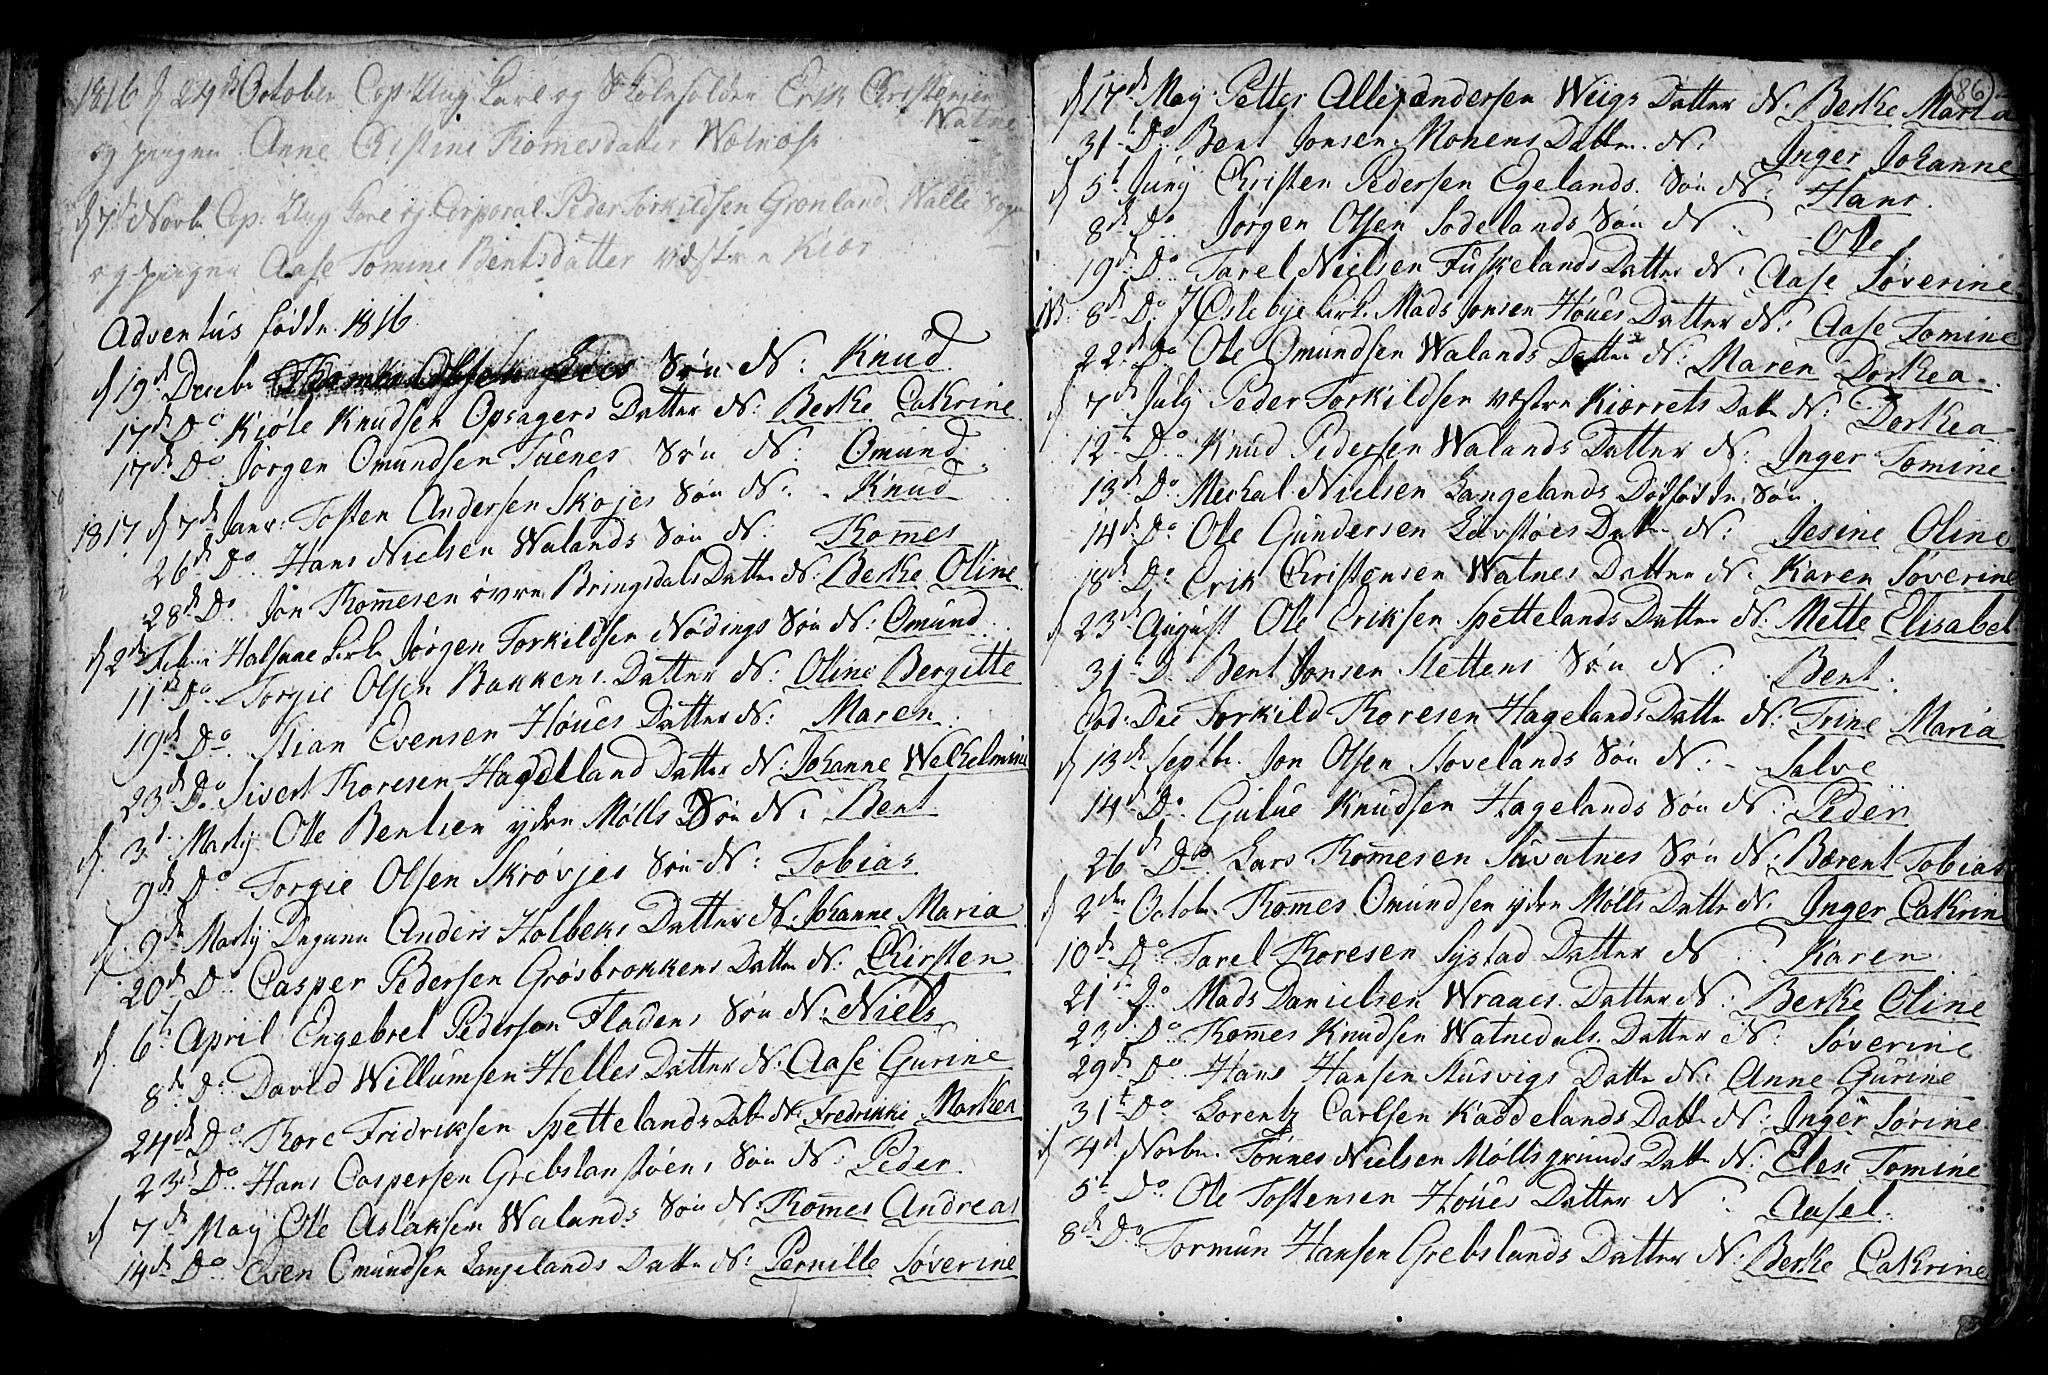 1816 d 24de October Cop: Ung Karl og Skoleholder Erik Christensen Watne
og pigen Anne Cristine Thomesdatter Wolnæs
d 7de Novbr Cop: Ung Karl og Corporal Peder Torkildsen Grønland Walle Sogn
og pigen Aase Tomine Bentsdatter vestre Kiær
Adventus fødde 1816
d 19de Decbr Søn N: Knud
17de Do Kiøle Knudsen Opsagers Datter N: Berthe Cathrine
17de Do Jørgen Omundsen Tuenes Søn N: Omund
1817 d 7de Janr: Tosten Andersen Skojes Søn N: Knud
26de Do Hans Nielsen Walands Søn N: Thomes
28de Do Jon Thomesen øvre Bringsdals Datter N: Berthe Oline
d 2den Febr: Halsaae Kirke Jørgen Torkildsen Nødings Søn N: Omund
11te Do Torgie Olsen Bakkens Datter N: Oline Bergitte
19de Do Stian Evensen Høues Datter N: Maren
23de Do Sivert Thoresen Hagelland Datter N: Johanne Welhelmine
d. 3de Martij Ole Bentsen ydre Mølls Søn N: Bent
9de Do Torgie Olsen Skrøvjes Søn N: Tobias
d. 9de Martij Degnen Anders Holbeks Datter N: Johanne Maria
20de Do Casper Pedersen Grøsbrokkens Datter N: Chirsten
d. 6te April Engebret Pedersen Fladens Søn N: Niels
8de Do David Willumsen Helles Datter N: Aase Gurine
24de Do Thore Fridriksen Spettelands Datter N: Fredrikke Marthea
23de Do Hans Caspersen Grebstanstøens Søn N: Peder
d 7de May Ole Aslaksen Walands Søn N: Thomes Andreas
14de Do Even Omundsen Langelands Datter N: Pernille Søverine
86
d 17de May Petter Allexandersen Wiigs Datter N. Berthe Maria
31te Do Bent Jonsen Monens Datter N: Inger Johanne
d 5te Junÿ Christen Pedersen Egelands Søn N: Hans
8de Do Jørgen Olsen Sodelands Søn N: Ole
19de Do Tarel Nielsen Fuskelands Datter N: Aase Søverine
NB. 8de Do I Østebye Kirke Mads Jonsen Høues Datter N: Aase Tomine
22de Do Ole Omundsen Walands Datter N: Maren Dorthea
d 7de July Peder Torkildsen vestre Kiærrets Datter N: Dorthea
12te Do Knud Pedersen Walands Datter N: Inger Tomine
13de Do Michal Nielsen Langelands Dødfødde Søn
14de Do Ole Gundersen Leevstøes Datter N: Jesine Oline
18de Do Erik Christensen Watnes Datter N: Karen Søverine
d 23de August Ole Eriksen Spettelands Datter N: Mette Elisabet
31te Do Bent Jonsen Slettens Søn N: Bent
Eod: Die Torkild Thoresen Hagelands Datter N: Trine Maria
d 13de Septbr. Jon Olsen Stovelands Søn N: Salve
14de Do Gulue Knudsen Hagelands Søn N: Peder
26de Do Lars Thomesen Suvatnes Søn N: Bærent Tobias
d 2den Octobr Thomes Omundsen ydre Mølls Datter N. Inger Cathrine
10de Do Tarel Thoresen Systad Datter N: Karen
21te Do Mads Danielsen Wraaes Datter N: Berthe Oline
23de Do Thomes Knudsen Watnedals Datter N: Søverine
29de Do Hans Hansen Ausvigs Datter N: Anne Gurine
31te Do Lorentz Carlsen Kaddelands Datter N: Inger Sørine
d 4de Novbr Tønnes Nielsen Møllsgrunds Datter N: Elen Tomine
5te Do Ole Tostensen Høues Datter N: Aasel
8de Do Tormun Hansen Grebslands Datter N: Berthe Cathrine